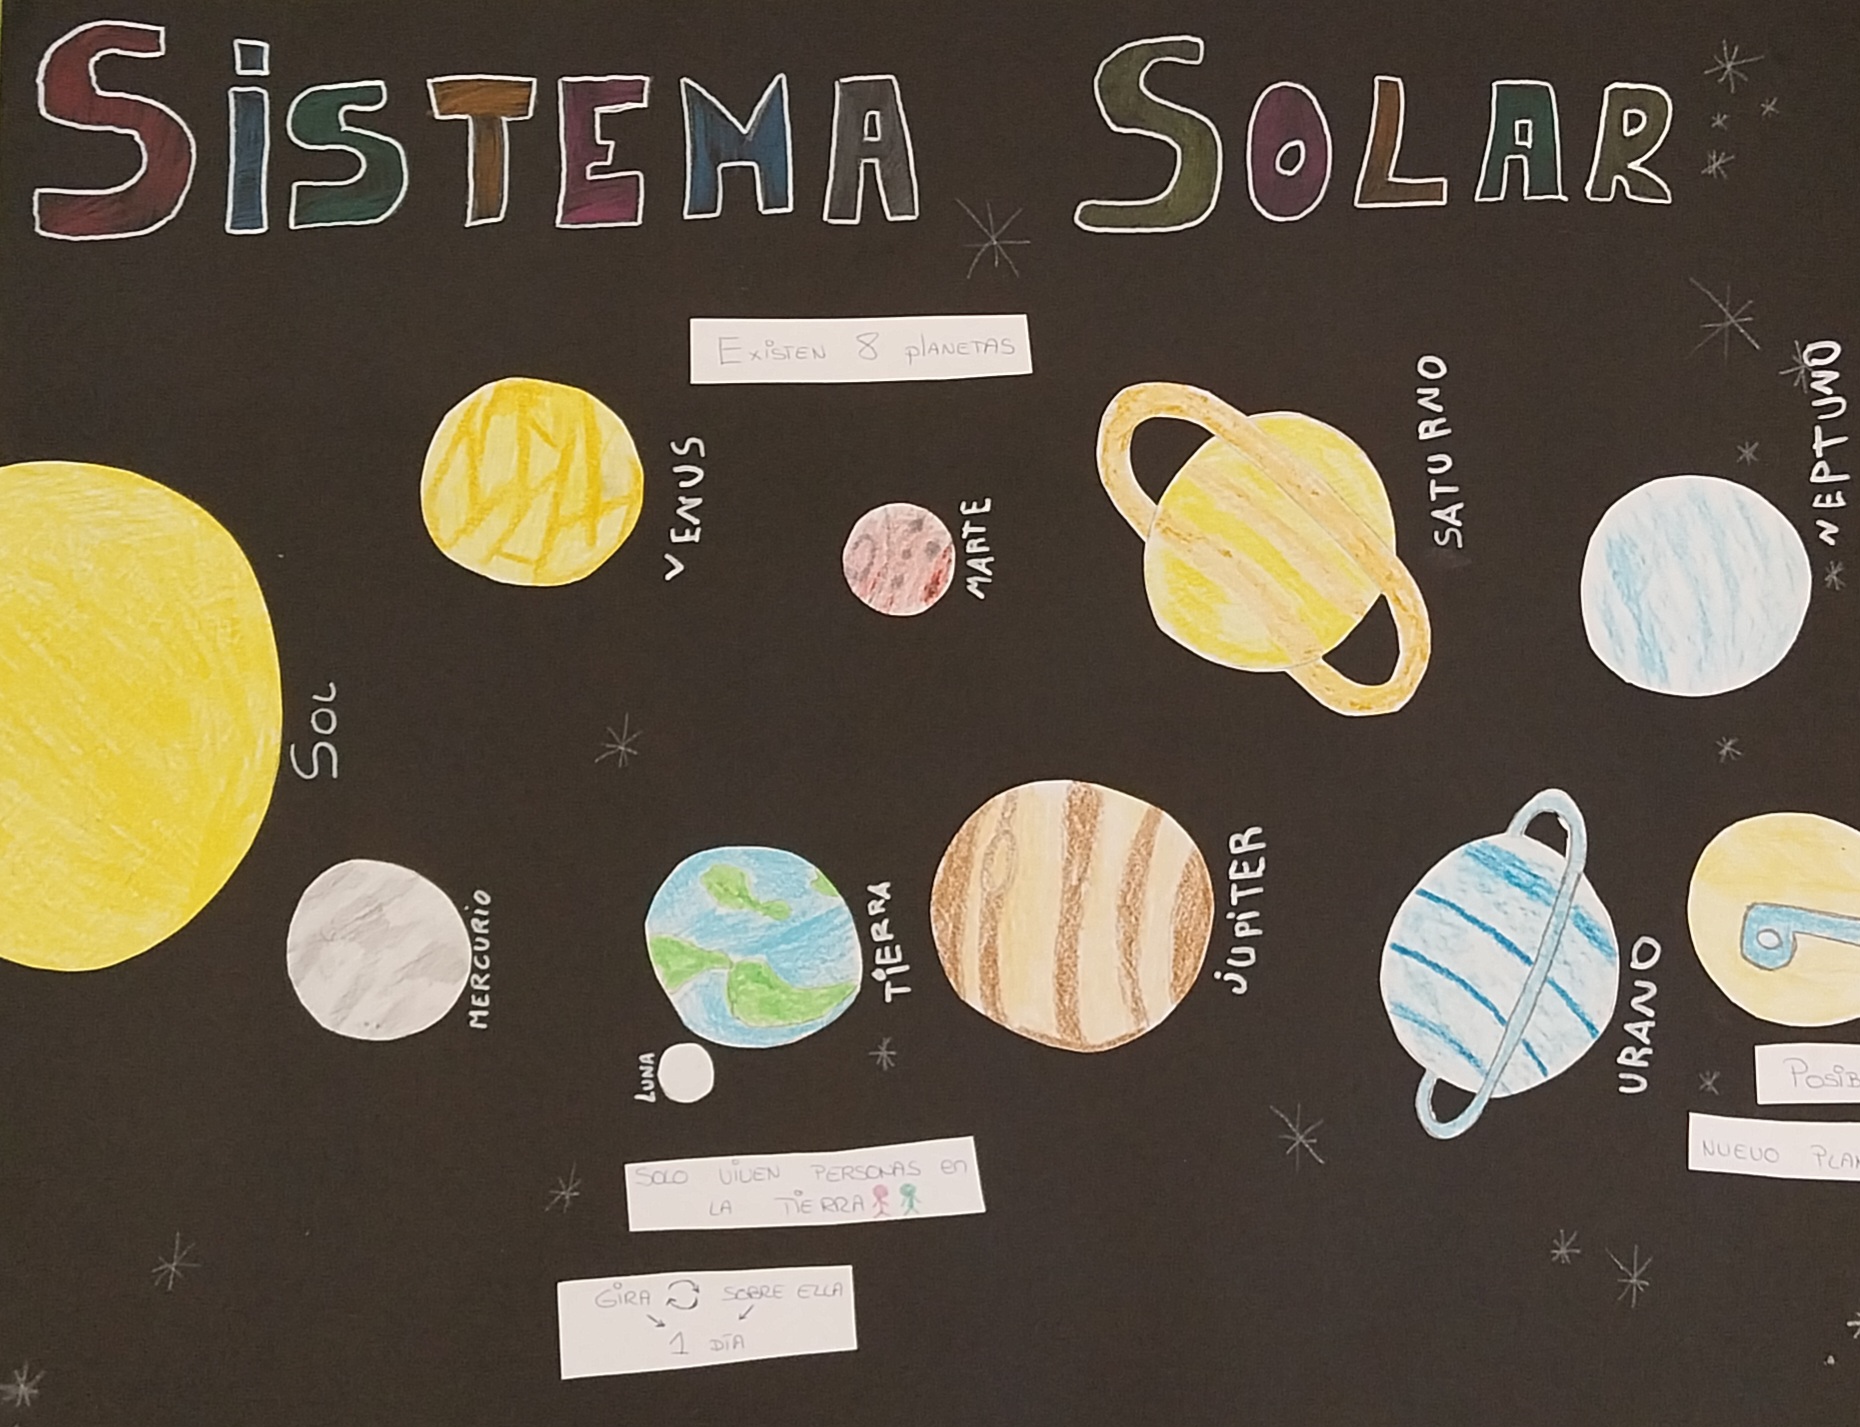 SiSTEMA SOLAR
EXiSTEN 8 plANETAS
SOL
VENUS
MARTE
SATURNO
NEPTUNO
MERCURiO
TiERRA
LUNA
jUPiTER
URANO
POSiB
NUEVO PLAN
SOLO ViVEN PERSONAS En
LA TiERRA
GiRA SOBRE ELLA
1 DÍA